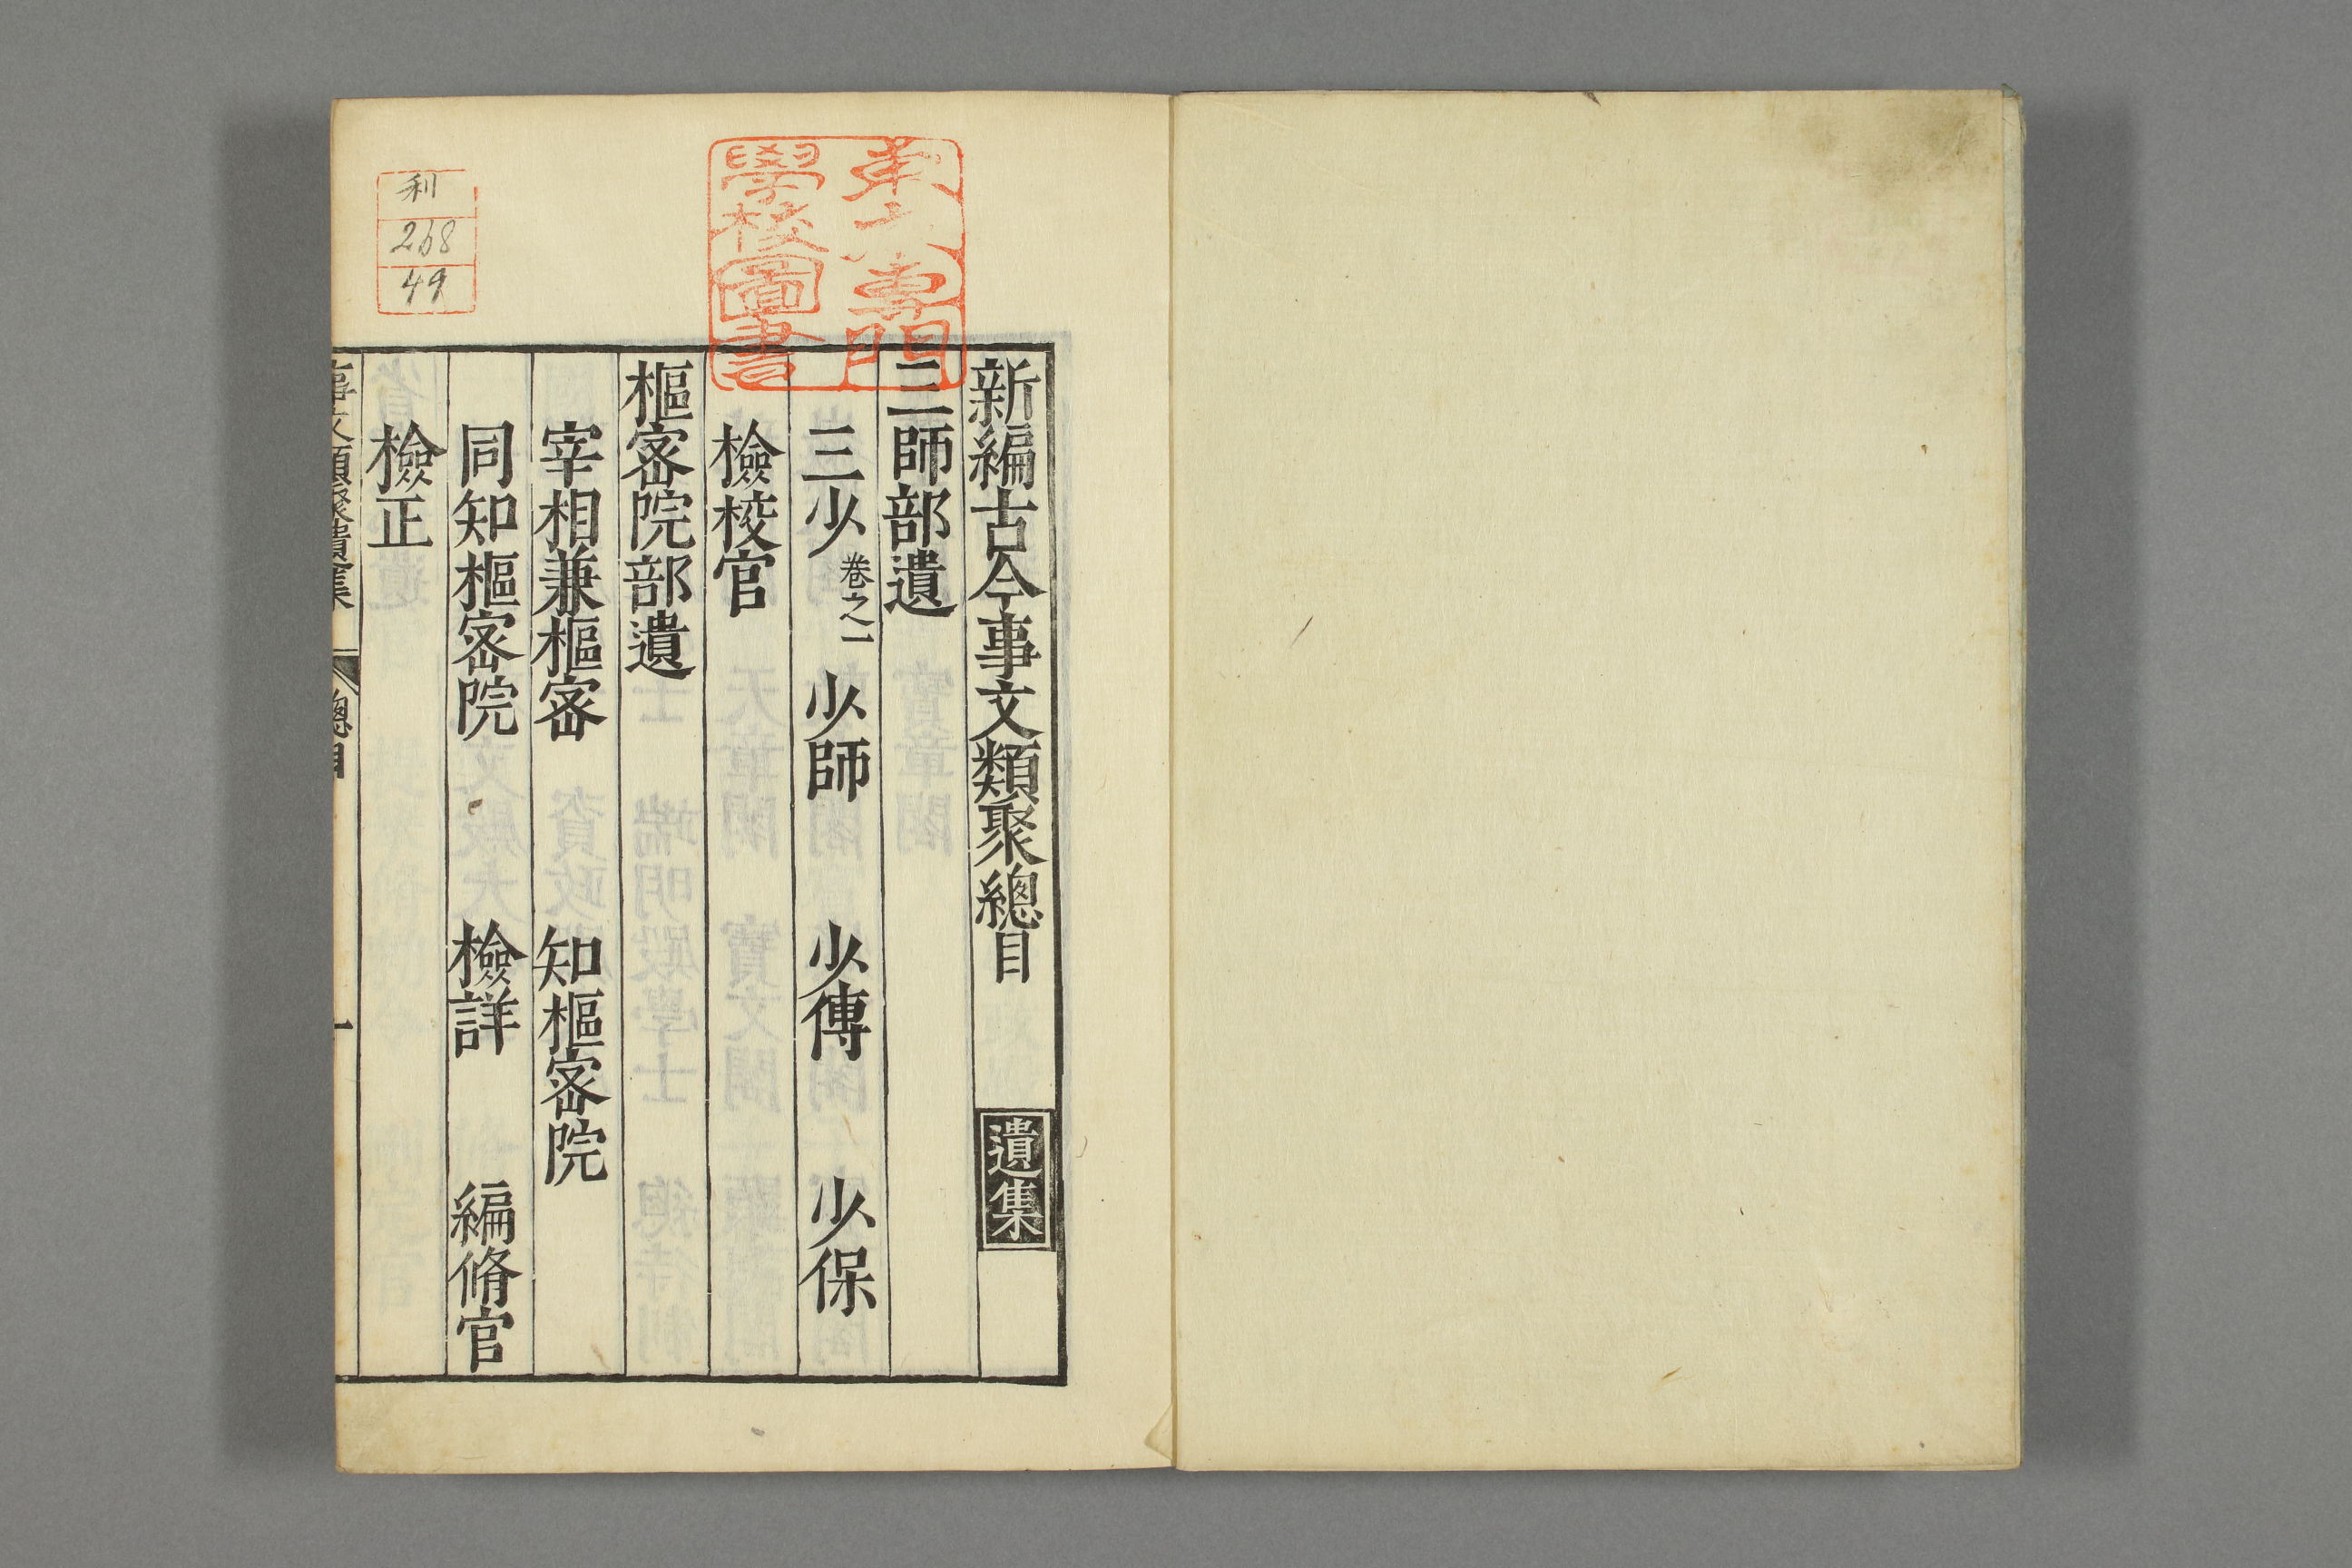 新編古今事文類聚總目 遺集
三師部遺
三少 卷之一 少師 少傅 少保
檢校官
樞密院部遺
宰相兼樞密 知樞密院
同知樞密院 檢詳 編脩官
檢正
事文類聚遺集 總目 一
專門
學校圖書
利
268
49